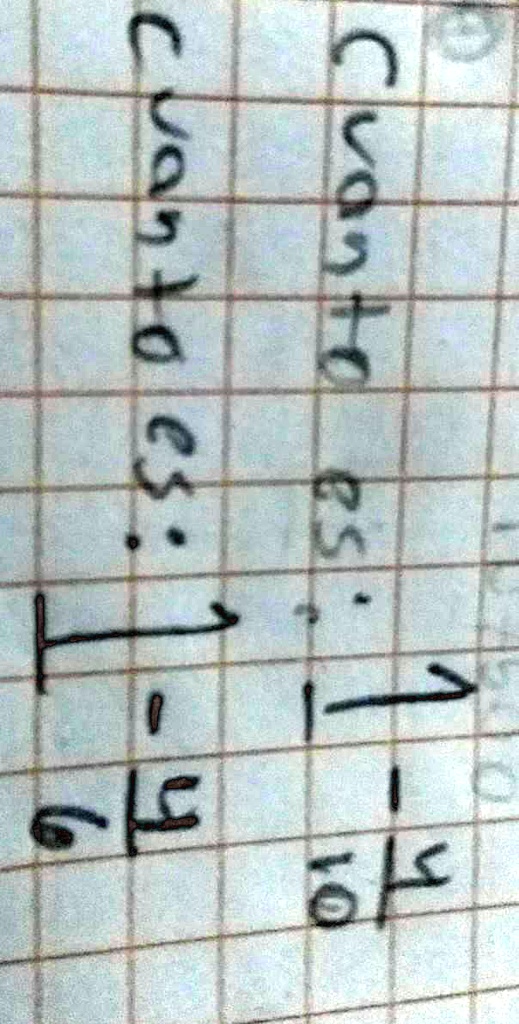 cuanto es: 1 - 4/10
cuanto es: 1 - 4/6